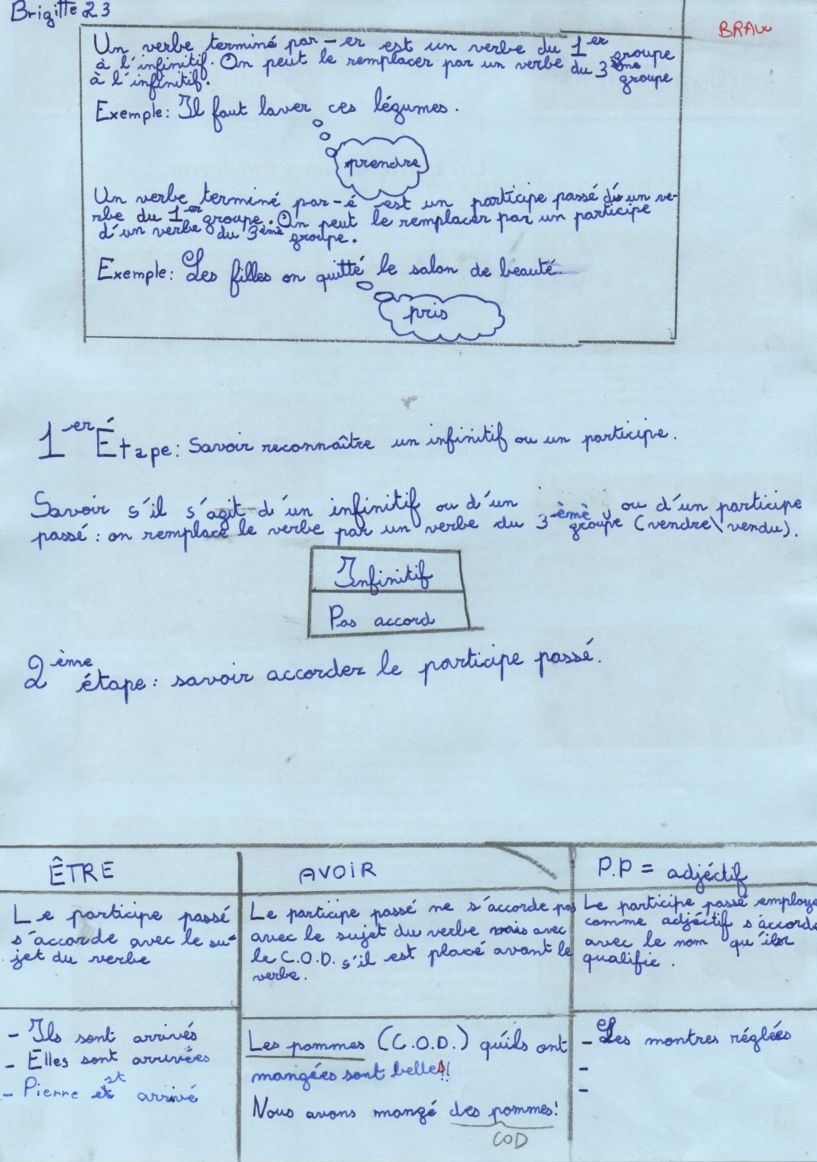 Brigitte 23
BRAVO
Un verbe terminé par -er est un verbe du 1er groupe
à l'infinitif. On peut le remplacer par un verbe du 3ème groupe
à l'infinitif.
Exemple: Il faut laver ces légumes.
prendre
Un verbe terminé par -é est un participe passé d'un ve-
rbe du 1er groupe. On peut le remplacer par un participe
d'un verbe du 3ème groupe.
Exemple: Les filles on quitté le salon de beauté.
pris
1er Étape: Savoir reconnaître un infinitif ou un participe.
Savoir s'il s'agit d'un infinitif ou d'un ou d'un participe
passé: on remplace le verbe par un verbe du 3ème groupe (vendre\vendu).
Infinitif
Pas accord
2ème étape: savoir accorder le participe passé.
ÊTRE
Le participe passé
s'accorde avec le su-
jet du verbe
- Ils sont arrivés
- Elles sont arrivées
- Pierre est arrivé
AVOIR
Le participe passé ne s'accorde pas
avec le sujet du verbe mais avec
le C.O.D. s'il est placé avant le
verbe.
Les pommes (C.O.D.) qu'ils ont
mangées sont belles!!
Nous avons mangé des pommes!
COD
P.P = adjéctif
Le participe passé employé
comme adjéctif s'accorde
avec le nom qu'il
qualifie.
- Les montres réglées
-
-